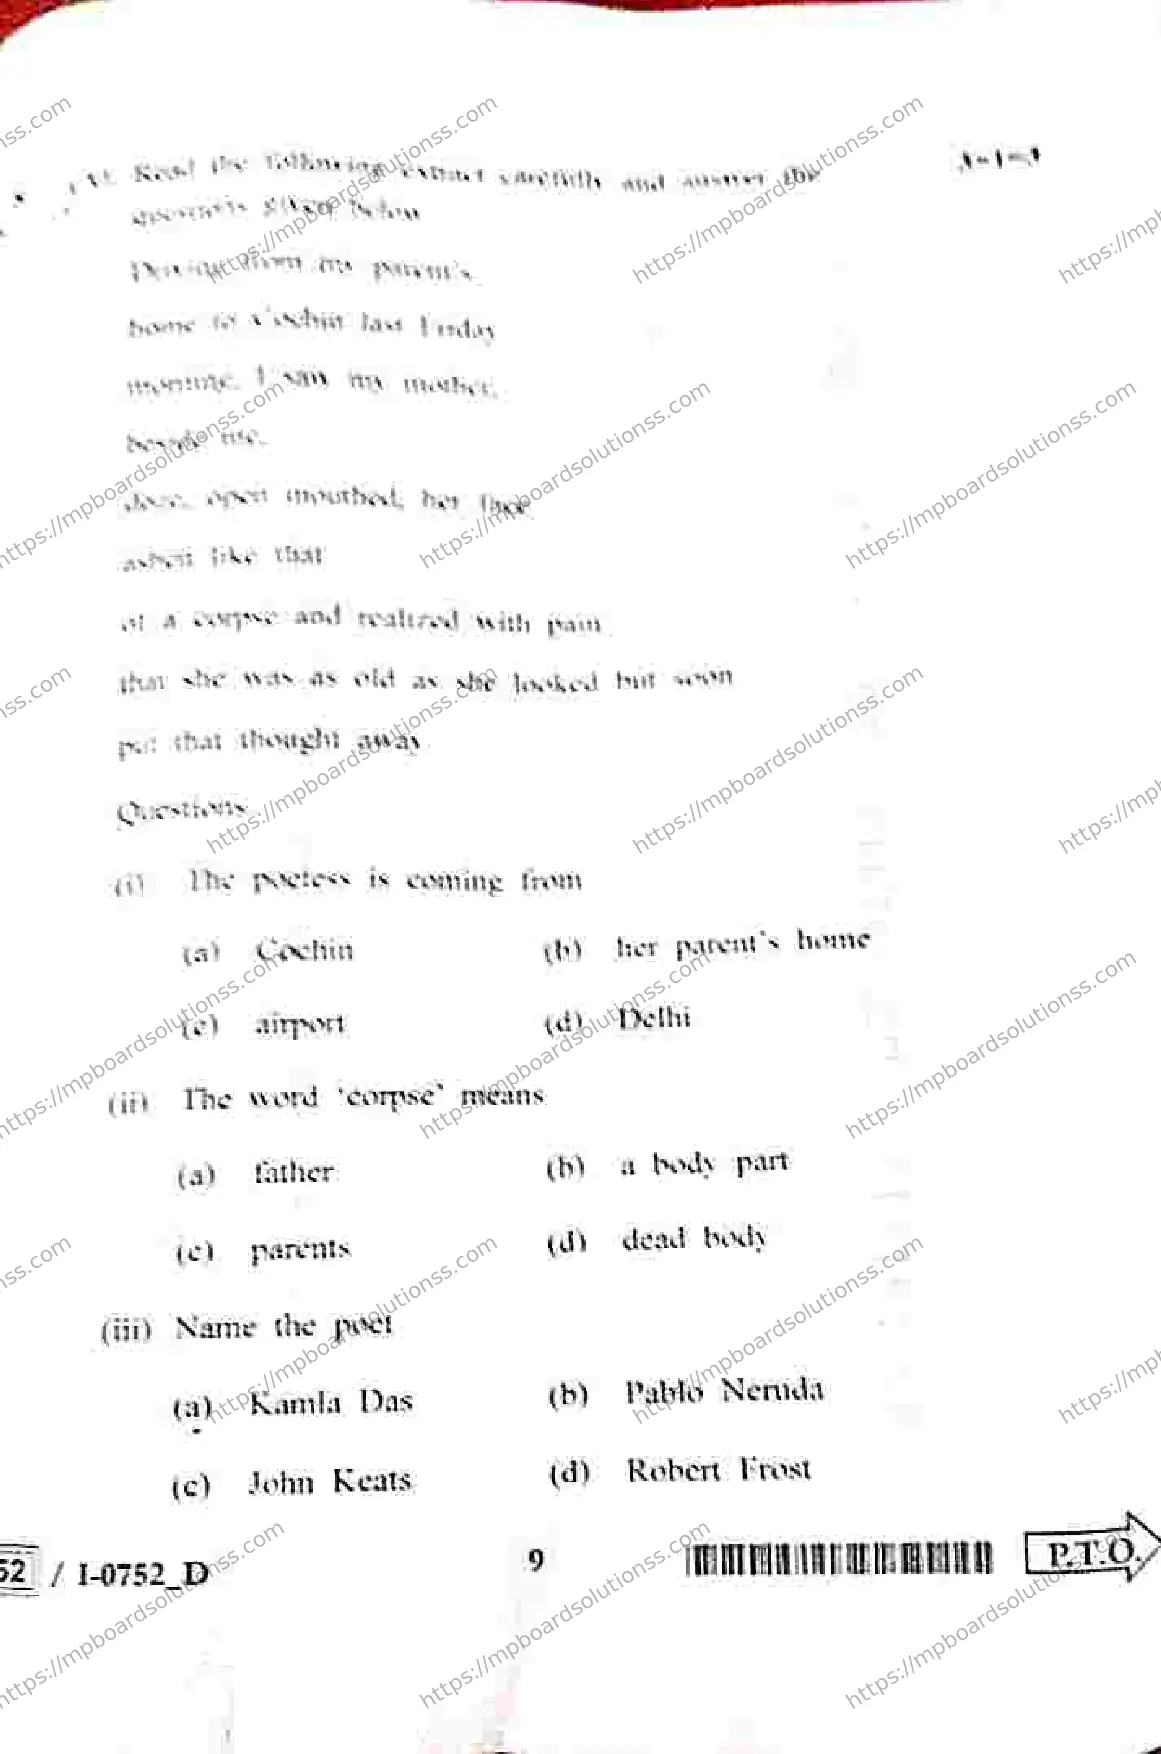 Read the following extract carefully and answer the
questions given below
Driving from my parent's
home to Cochin last Friday
morning, I saw my mother,
beside me,
doze, open mouthed, her face
ashen like that
of a corpse and realized with pain
that she was as old as she looked but soon
put that thought away
Questions
(i) The poetess is coming from
(a) Cochin (b) her parent's home
(c) airport (d) Delhi
(ii) The word 'corpse' means
(a) father (b) a body part
(c) parents (d) dead body
(iii) Name the poet
(a) Kamla Das (b) Pablo Neruda
(c) John Keats (d) Robert Frost
52 / I-0752_D 9 P.T.O.
https://mpboardsolutionss.com